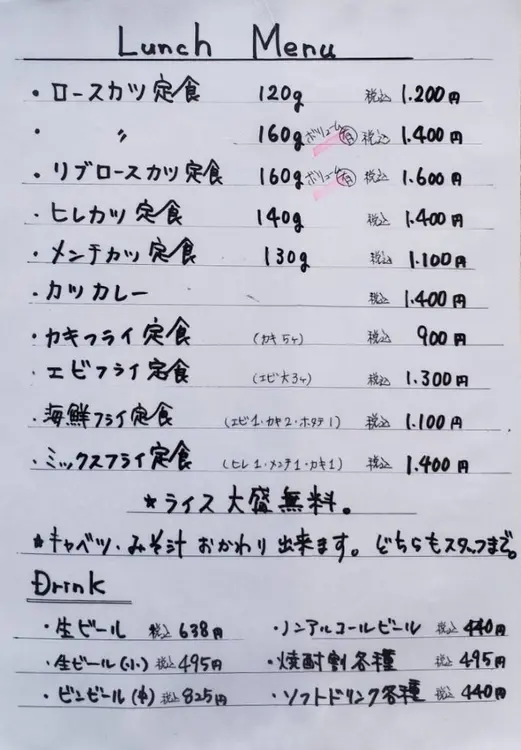 Lunch Menu
・ロースカツ定食 120g 税込 1.200円
・ 〃 160g ボリューム有 税込 1.400円
・リブロースカツ定食 160g ボリューム有 税込 1.600円
・ヒレカツ定食 140g 税込 1.400円
・メンチカツ定食 130g 税込 1.100円
・カツカレー 税込 1.400円
・カキフライ定食 (カキ5ケ) 税込 900円
・エビフライ定食 (エビ大3ケ) 税込 1.300円
・海鮮フライ定食 (エビ1・カキ2・ホタテ1) 税込 1.100円
・ミックスフライ定食 (ヒレ1・メンチ1・カキ1) 税込 1.400円
★ライス大盛無料。
★キャベツ・みそ汁おかわり出来ます。どちらもスタッフまで。
Drink
・生ビール 税込 638円 ・ノンアルコールビール 税込 440円
・生ビール(小) 税込 495円 ・焼酎割各種 税込 495円
・ビンビール(中) 税込 825円 ・ソフトドリンク各種 税込 440円